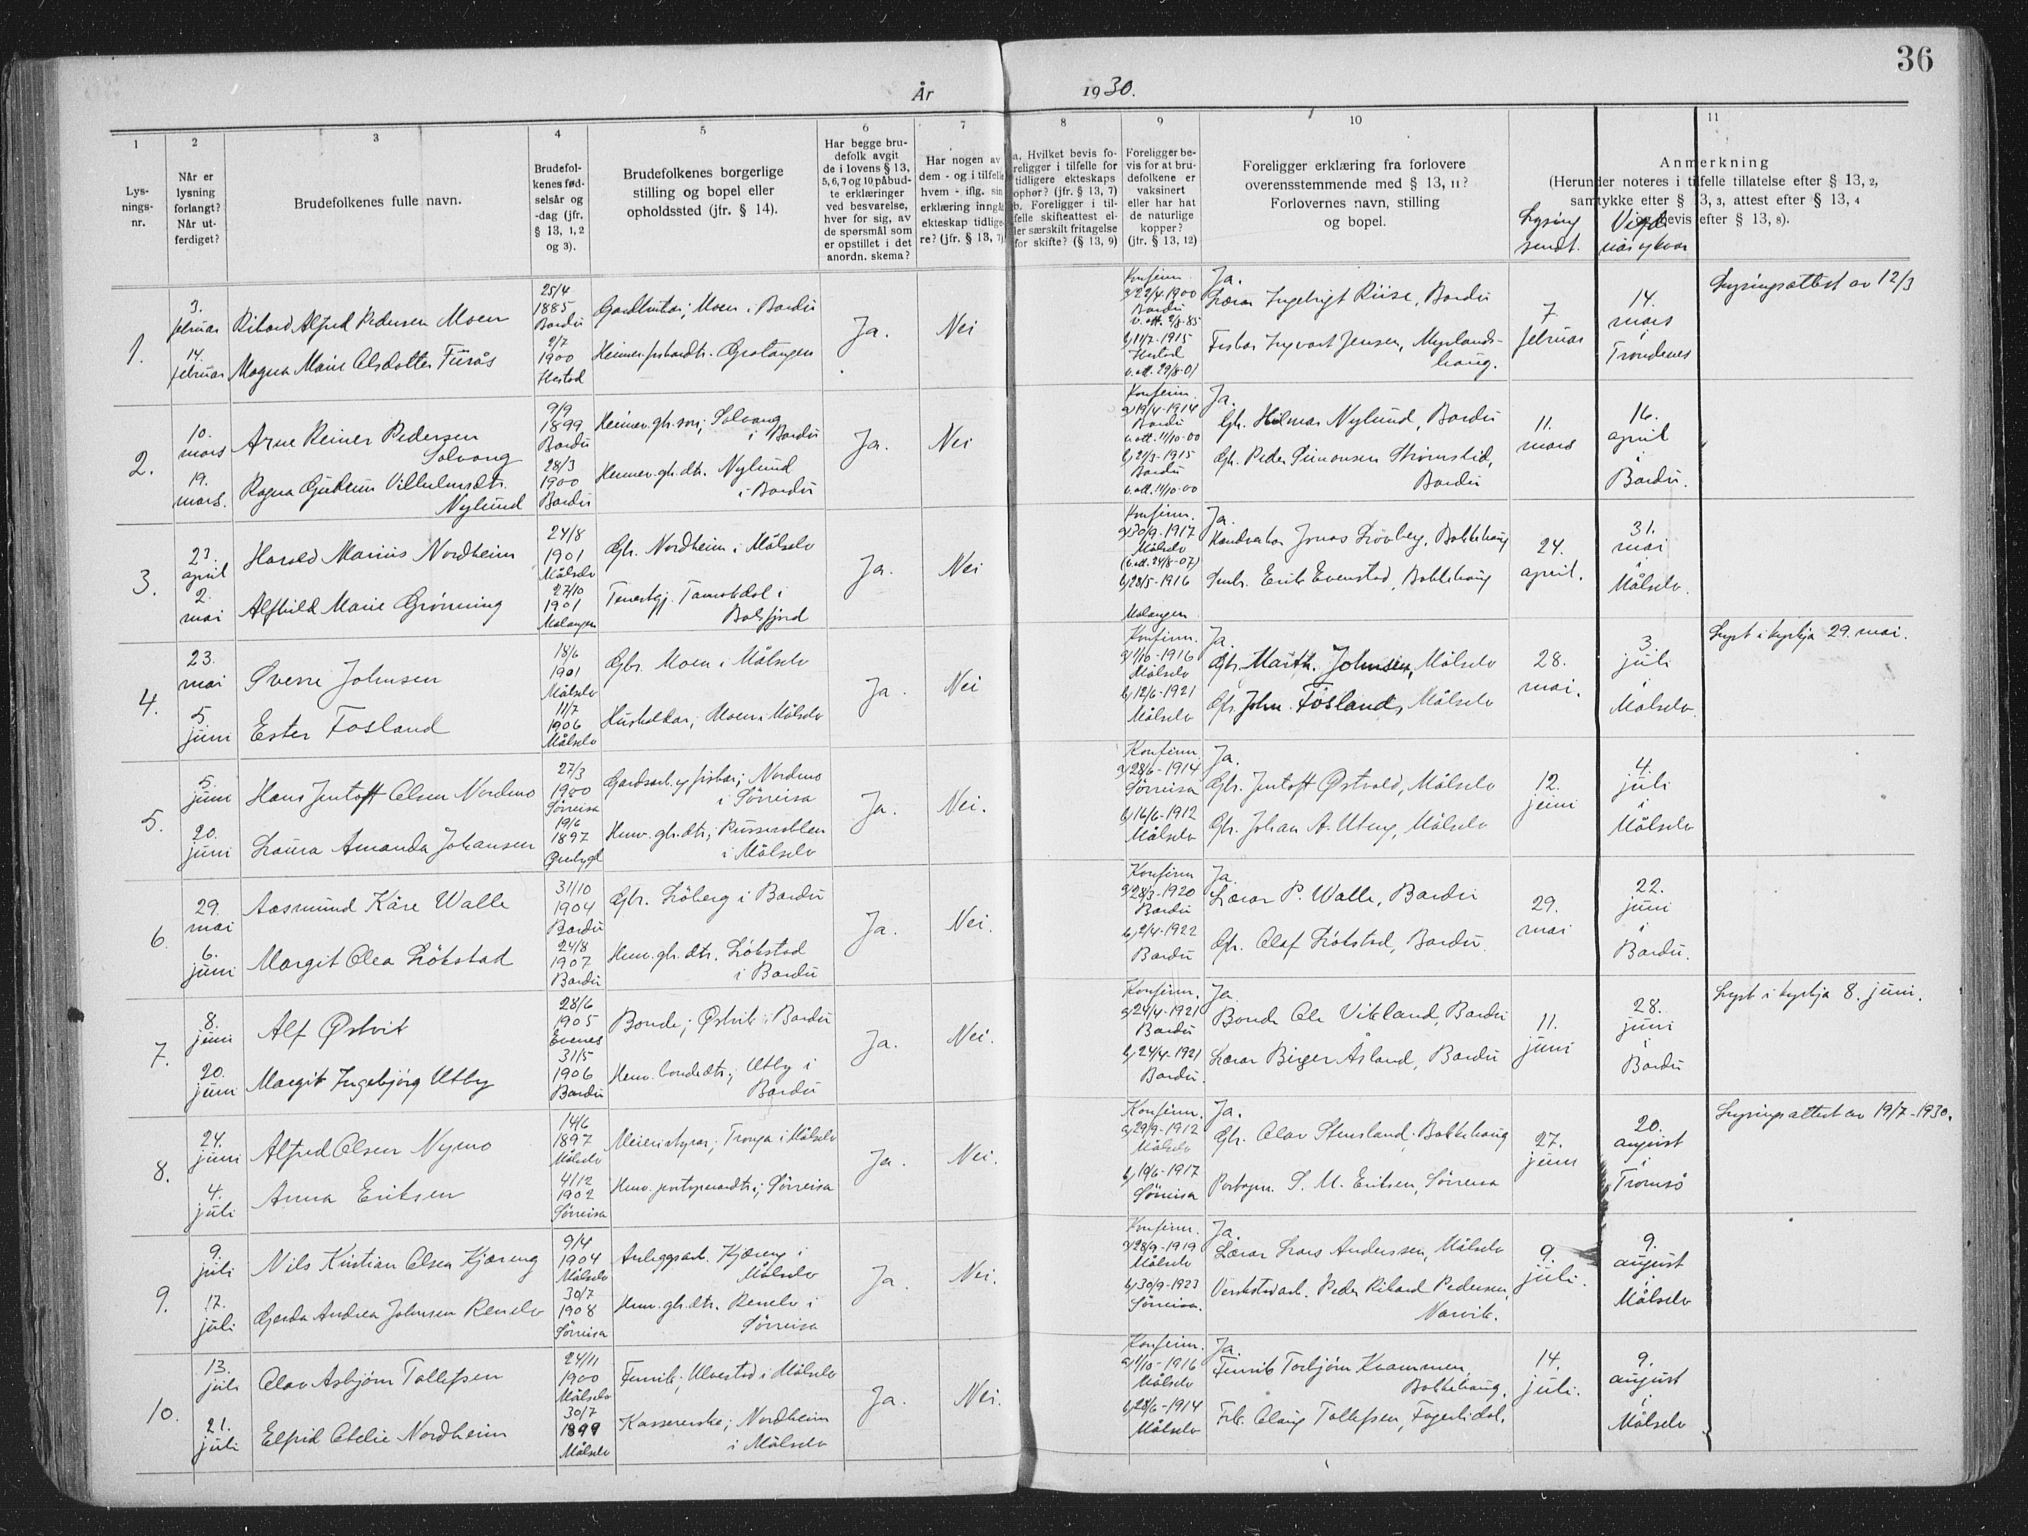 36
År 1930.
1
2
3
4
5
6
7
8
9
10
11
Lys-
nings-
nr.
Når er
lysning
forlangt?
Når ut-
ferdiget?
Brudefolkenes fulle navn.
Brudefol-
kenes fød-
selsår og
-dag (jfr.
§ 13, 1, 2
og 3).
Brudefolkenes borgerlige
stilling og bopel eller
opholdssted (jfr. § 14).
Har begge bru-
defolk avgit
de i lovens § 13,
5, 6, 7 og 10 påbud-
te erklæringer
ved besvarelse,
hver for sig, av
de spørsmål som
er opstillet i det
anordn. skema?
Har nogen av
dem - og i tilfelle
hvem - iflg. sin
erklæring inngå
ekteskap tidlige-
re? (jfr. § 13, 7)
a. Hvilket bevis fo-
religger i tilfelle for
tidligere ekteskaps
ophør? (jfr. § 13, 7)
b. Foreligger i til-
felle skifteattest el-
ler særskilt fritagelse
for skifte? (§ 13, 9)
Foreligger be-
vis for at bru-
defolkene er
vaksinert
eller har hat
de naturlige
kopper?
(jfr. § 13, 12)
Foreligger erklæring fra forlovere
overensstemmende med § 13, 11?
Forlovernes navn, stilling
og bopel.
Anmerkning
(Herunder noteres i tilfelle tillatelse efter § 13, 2,
samtykke efter § 13, 3, attest efter § 13, 4
og bevis efter § 13, 8).
Lysing
sendt.
Vigd
når og kvar
1.
3.
februar
14.
februar
Rikard Alfred Pedersen Moen
Magna Marie Olsdatter Furås
25/4
1885
Bardu
2/7
1900
Ibestad
Gardbrukar; Moen i Bardu
Gratangen
Ja.
Nei
Konfirm.
a) 22/4-1900
Bardu
v. att. 2/8-85
b) 11/7-1915
Ibestad
v. att. 29/8-01
Ja.
Lærar Ingebrigt Riise, Bardu
Fiskar Ingvart Jensen, Myrlands-
haug.
7.
februar
14.
mars
i
Trondenes
Lysingsattest av 12/3
2.
10.
mars
19.
mars.
Arne Reiner Pedersen
Solvang
Ragna Gudrun Vilhelmsdtr.
Nylund
9/9
1899
Bardu
28/3
1900
Bardu
Heimev. gbr. son; Solvang
i Bardu
Heimev. gbr. dtr. Nylund
i Bardu
Ja.
Nei
Konfirm.
a) 19/4-1914
Bardu
v. att. 11/10-00
b) 21/3-1915
Bardu
v. att. 11/10-00
Ja.
Gbr. Hilmar Nylund, Bardu
Gbr. Peder Simonsen Strømslid,
Bardu
11.
mars
16.
april
i
Bardu.
3.
23.
april
2.
mai
Harald Marius Nordheim
Alfhild Marie Grønning
24/8
1901
Målselv
27/10
1901
Malangen
Gbr. Nordheim i Målselv
Tenestgj. Tamokdal i
Balsfjord
Ja.
Nei
Konfirm.
a) 30/9-1917
Målselv
(v. att. 24/8-07)
b) 28/5-1916
Malangen
Ja.
Handverkar Jonas Løvberg, Bakkehaug
Småbr. Erik Evenstad, Bakkehaug
24.
april.
31.
mai
i
Målselv.
4.
23.
mai
5.
juni
Sverre Johnsen
Ester Fosland
18/6
1901
Målselv
11/7
1906
Målselv
Gbr. Moen i Målselv
Hushaldar, Moen i Målselv
Ja.
Nei
Konfirm.
a) 1/10-1916
Målselv
b) 12/6-1921
Målselv
Ja.
Gbr. Marth. Johnsen, Målselv
Gbr. John. Fosland, Målselv
28.
mai.
3.
juli
i
Målselv.
Lyst i kyrkja 29. mai.
5.
5.
juni
20.
juni
Hans Jentoft Olsen Nordmo
Laura Amanda Johansen
27/3
1900
Sørreisa
19/6
1897
Øverbygd
Gardsarb. og fiskar; Nordmo
i Sørreisa
Heimv. gbr. dtr;
i Målselv
Ja.
Nei.
Konfirm
a) 28/6-1914
Sørreisa
b) 16/6-1912
Målselv
Ja.
Gbr. Jentoft Østvold, Målselv
Gbr. Johan A. Uteng, Målselv
12.
juni
4.
juli
i
Målselv
6.
29.
mai
6.
juni
Aasmund Kåre Walle
Margit Olea Løkstad
31/10
1904
Bardu
24/8
1907
Bardu
Gbr. Løberg i Bardu
Heimv. gbr. dtr. Løkstad
i Bardu
Ja.
Nei.
Konfirm
a) 28/3-1920
Bardu
b) 2/4-1922
Bardu
Ja.
Lærar P. Walle, Bardu
Gbr. Olaf Løkstad, Bardu.
29.
mai
22.
juni
i
Bardu.
7.
8.
juni
20.
juni
Alf Østvik
Margit Ingebjørg Utby
28/6
1905
Evenes
31/5
1906
Bardu
Bonde; Østvik i Bardu
Heimv. bondedtr.; Utby i
Bardu
Ja.
Nei.
Konfirm.
a) 24/4-1921
Bardu
b) 24/4-1921
Bardu.
Ja.
Bonde Ole Vikland, Bardu
Lærar Birger Åsland, Bardu
11.
juni
28.
juni
i
Bardu
Lyst i kyrkja 8. juni.
8.
24.
juni
4.
juli
Alfred Olsen Nymo
Anna Eriksen
14/6
1897
Målselv
4/12
1902
Sørreisa
Meieristyrar, Tronga i Målselv
Heimv. postopnardtr.; Sørreisa
Ja.
Nei.
Konfirm.
a) 29/9-1912
Målselv
b) 10/6-1917
Sørreisa
Ja.
Gbr. Olav Stensland, Bakkehaug
Postopn. S. M. Eriksen, Sørreisa
27.
juni
20.
august
i
Tromsø
Lysingsattest av 19/7-1930.
9.
9.
juli
17.
juli
Nils Kristian Olsen Kjæreng
Gjerda Andrea Johnsen Renelv
9/4
1904
Målselv
30/7
1908
Sørreisa
Anleggsarb. Kjæreng i
Målselv
Heimv. gbr. dtr. Renelv i
Sørreisa
Ja.
Nei.
Konfirm.
a) 28/9-1919
Målselv
b) 30/9-1923
Sørreisa.
Ja.
Lærar Lars Anderssen, Målselv
Verkstadarb. Peder Rikard Pedersen,
Narvik.
9.
juli.
9.
august
i
Målselv
10.
13.
juli
21.
juli
Olav Asbjørn Tollefsen
Elfrid Otelie Nordheim
24/11
1900
Målselv
30/7
1899
Målselv
Fenrik; Ulvestad i Målselv
Kassererske; Nordheim
i Målselv
Ja.
Nei.
Konfirm.
a) 1/10-1916
Målselv
b) 28/6-1914
Målselv
Ja.
Fenrik Torbjørn Kvammen,
Bakkehaug.
Frk. Olaug Tollefsen, Fagerlidal.
14.
juli.
9.
august
i
Målselv